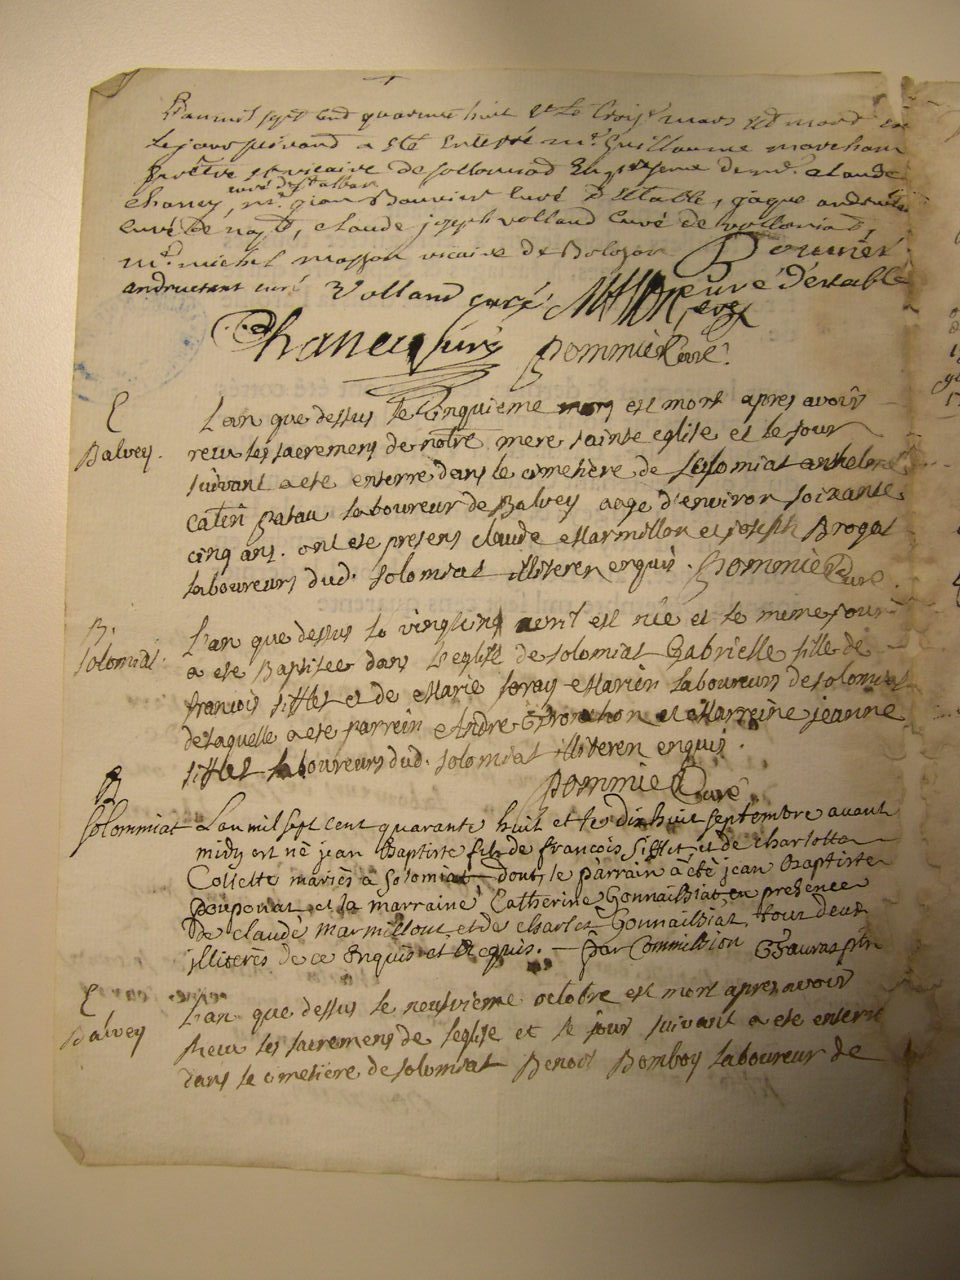 L'an mil sept cend quarante huit et le troisᵉ mars est mord et
le jour suivand a esté enterré mʳ guillaume marechau
prestre et vicaire de sollomiad en presence de mʳ claude
curé de st alban
chaney, mʳ jean Bouvier curé d'Estable, jaque andructan
curé de , claude joseph volland curé de vollonniad,
mʳ michel masson vicaire de Bolozon Bouvier
andructant curé Volland curé curé d'estable
Chaney curé pommier Curé.
E L'an que dessus le Cinquieme est mort apres avoir
Balvey. receu les sacremens de notre mere sainte eglise et le jour
suivant a ete enterré dans le cimetière de solomiat anthelme
catin patau laboureur de Balvey agé d'environ soixante
cinq ans. ont ete presens claude Marmillon et joseph Brogat
laboureurs dud. solomiat illiteren enquis. pommier Curé.
B L'an que dessus le vingtcinq avril est née et le meme jour
Solomiat. a ete Baptisée dans l'eglise de solomiat Gabrielle fille de
francois sifflet et de Marie Maries laboureurs de solomiat
de laquelle a ete parrein Andre et Marreine jeanne
sifflet laboureurs dud. solomiat illiteren enquis.
pommier Curé
B
Solommiat L'an mil sept cent quarante huit et le dix huit septembre avant
midy est né jean Baptiste fils de francois Sifflet et de charlotte
Collette mariés à Solomiat dont le parrain à été jean Baptiste
pouponat et la marraine Catherine Gonnailliat en presence
de claude marmillout et de charles Gonnailliat tout deux
illiteres de ce enquis et requis. — Par Commission Chauvas ptre
E L'an que dessus le neufvieme octobre est mort apres avoir
Balvey receu les sacremens de l'eglise et le jour suivant a ete enterré
dans le cimetière de solomiat Benoit Bomboy laboureur de